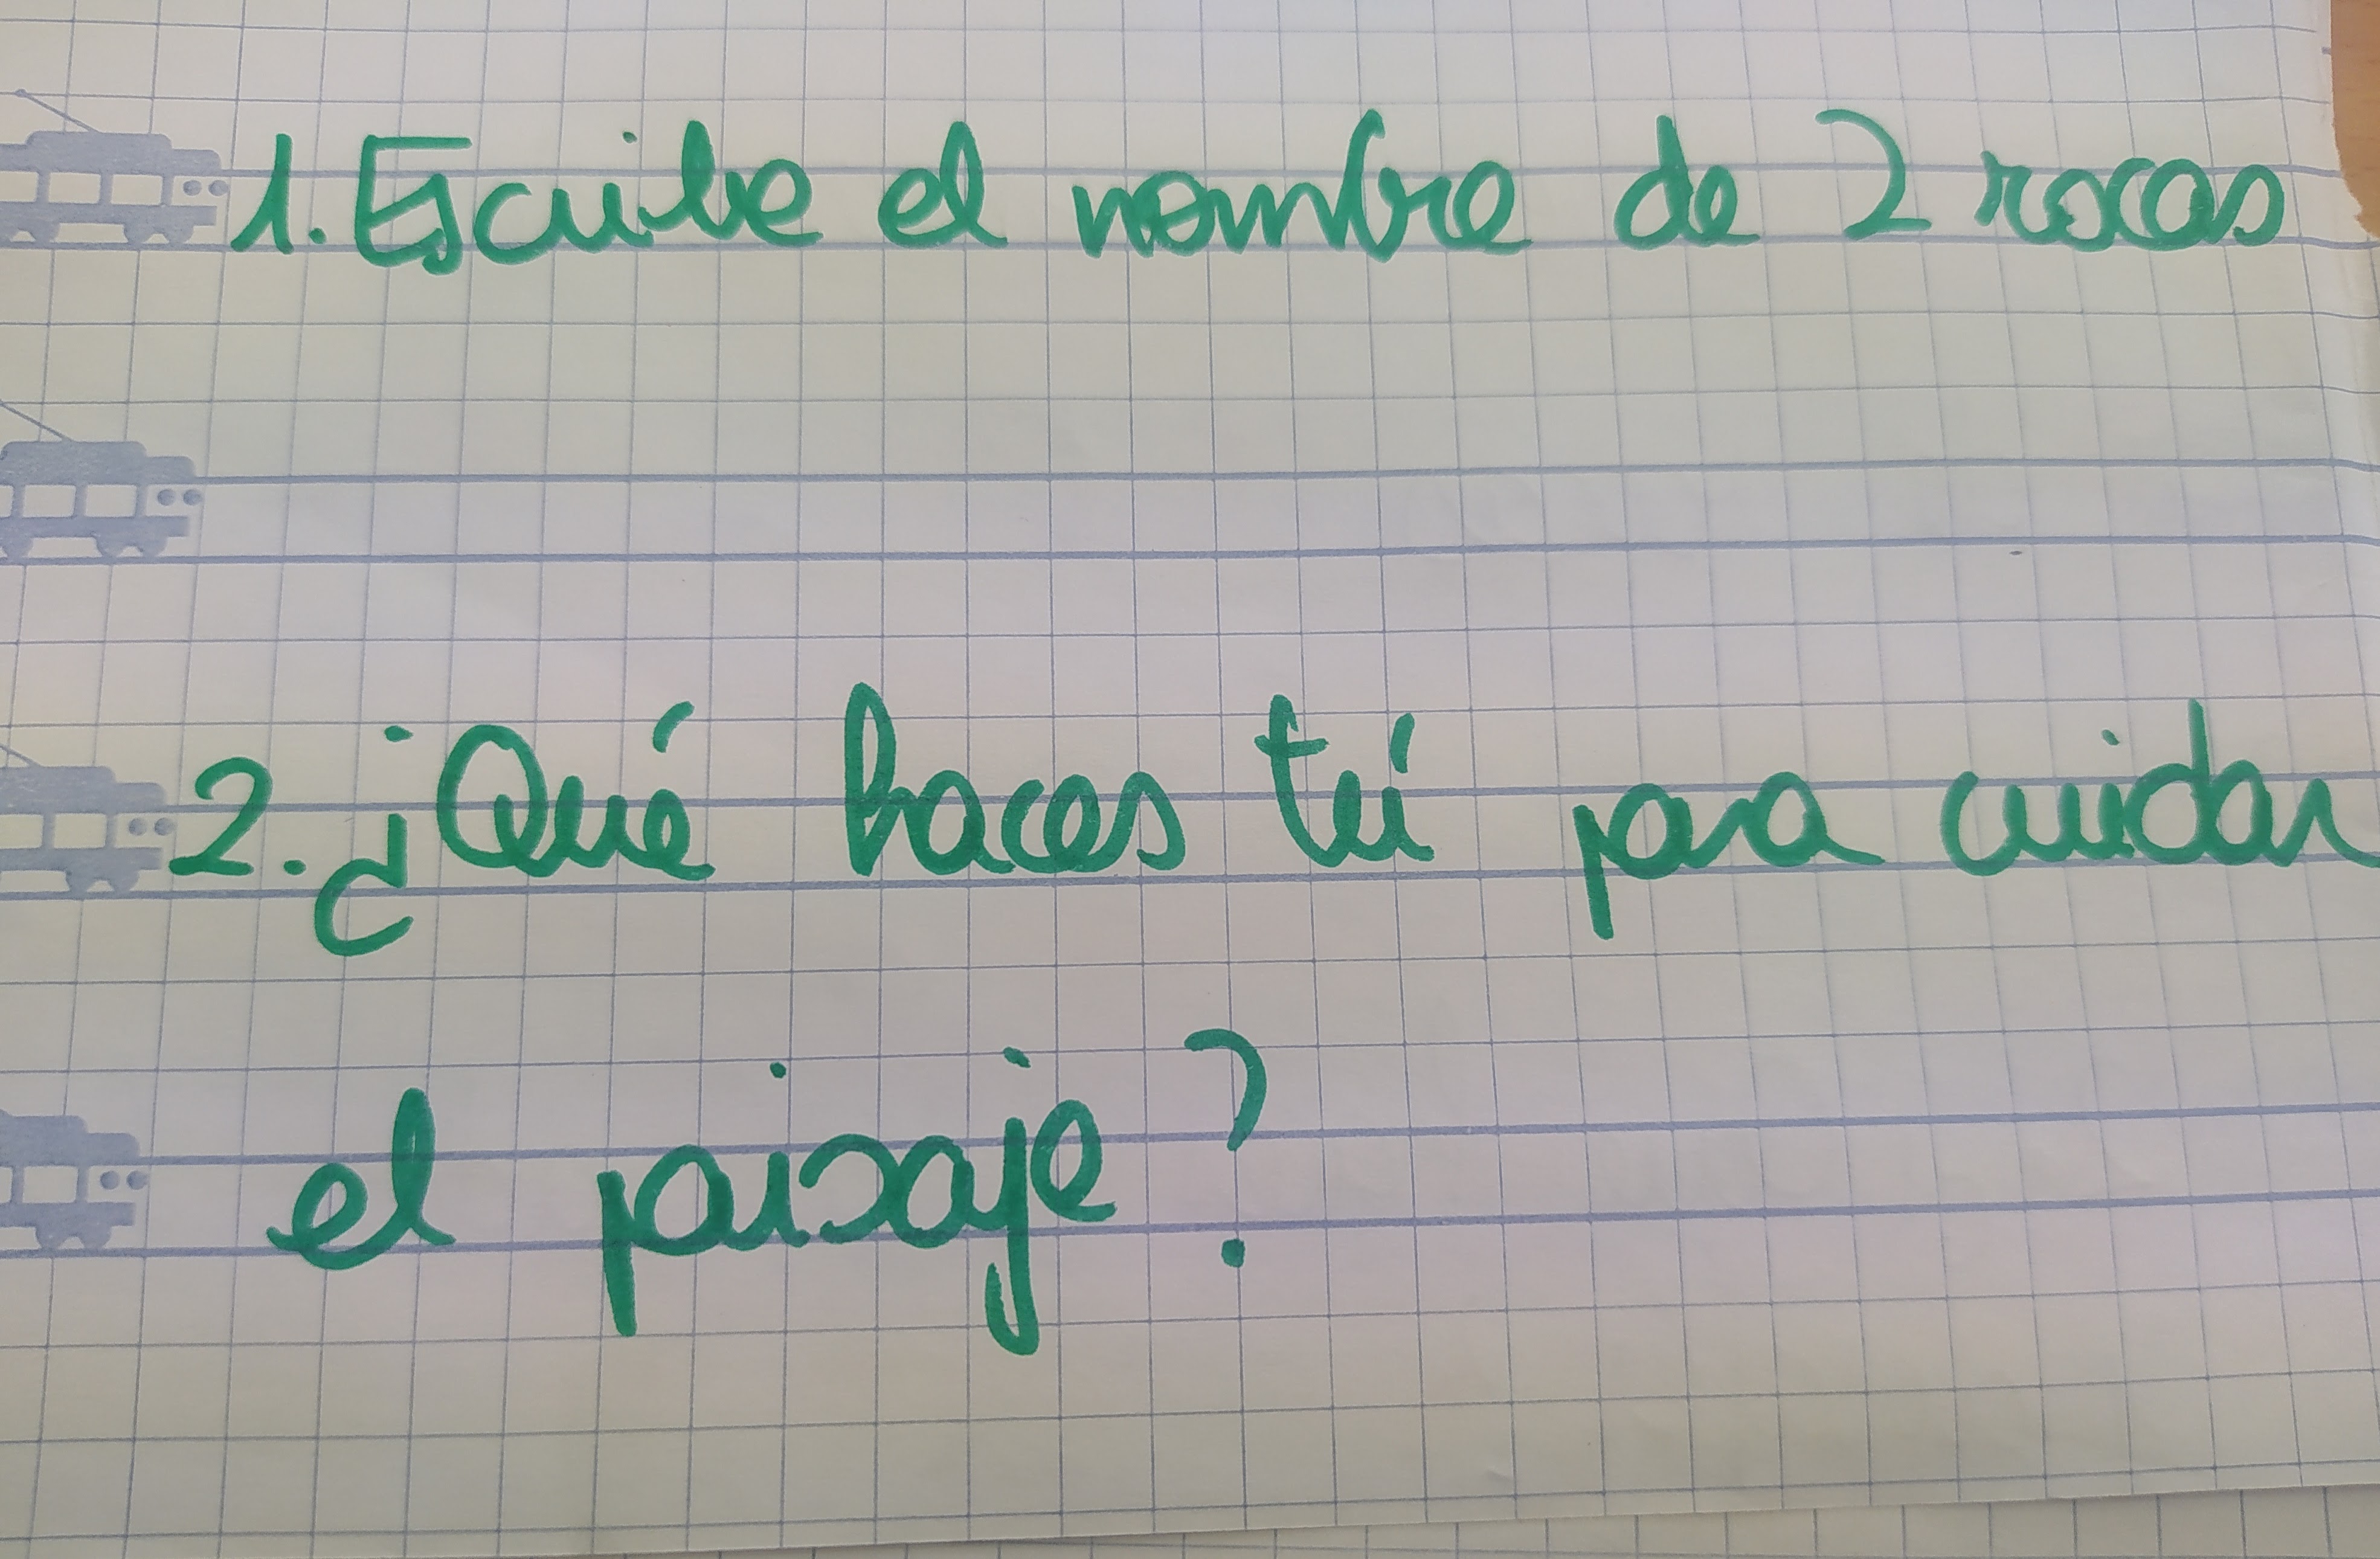 1. Escribe el nombre de 2 rocas
2. ¿Qué haces tú para cuidar
el paisaje?